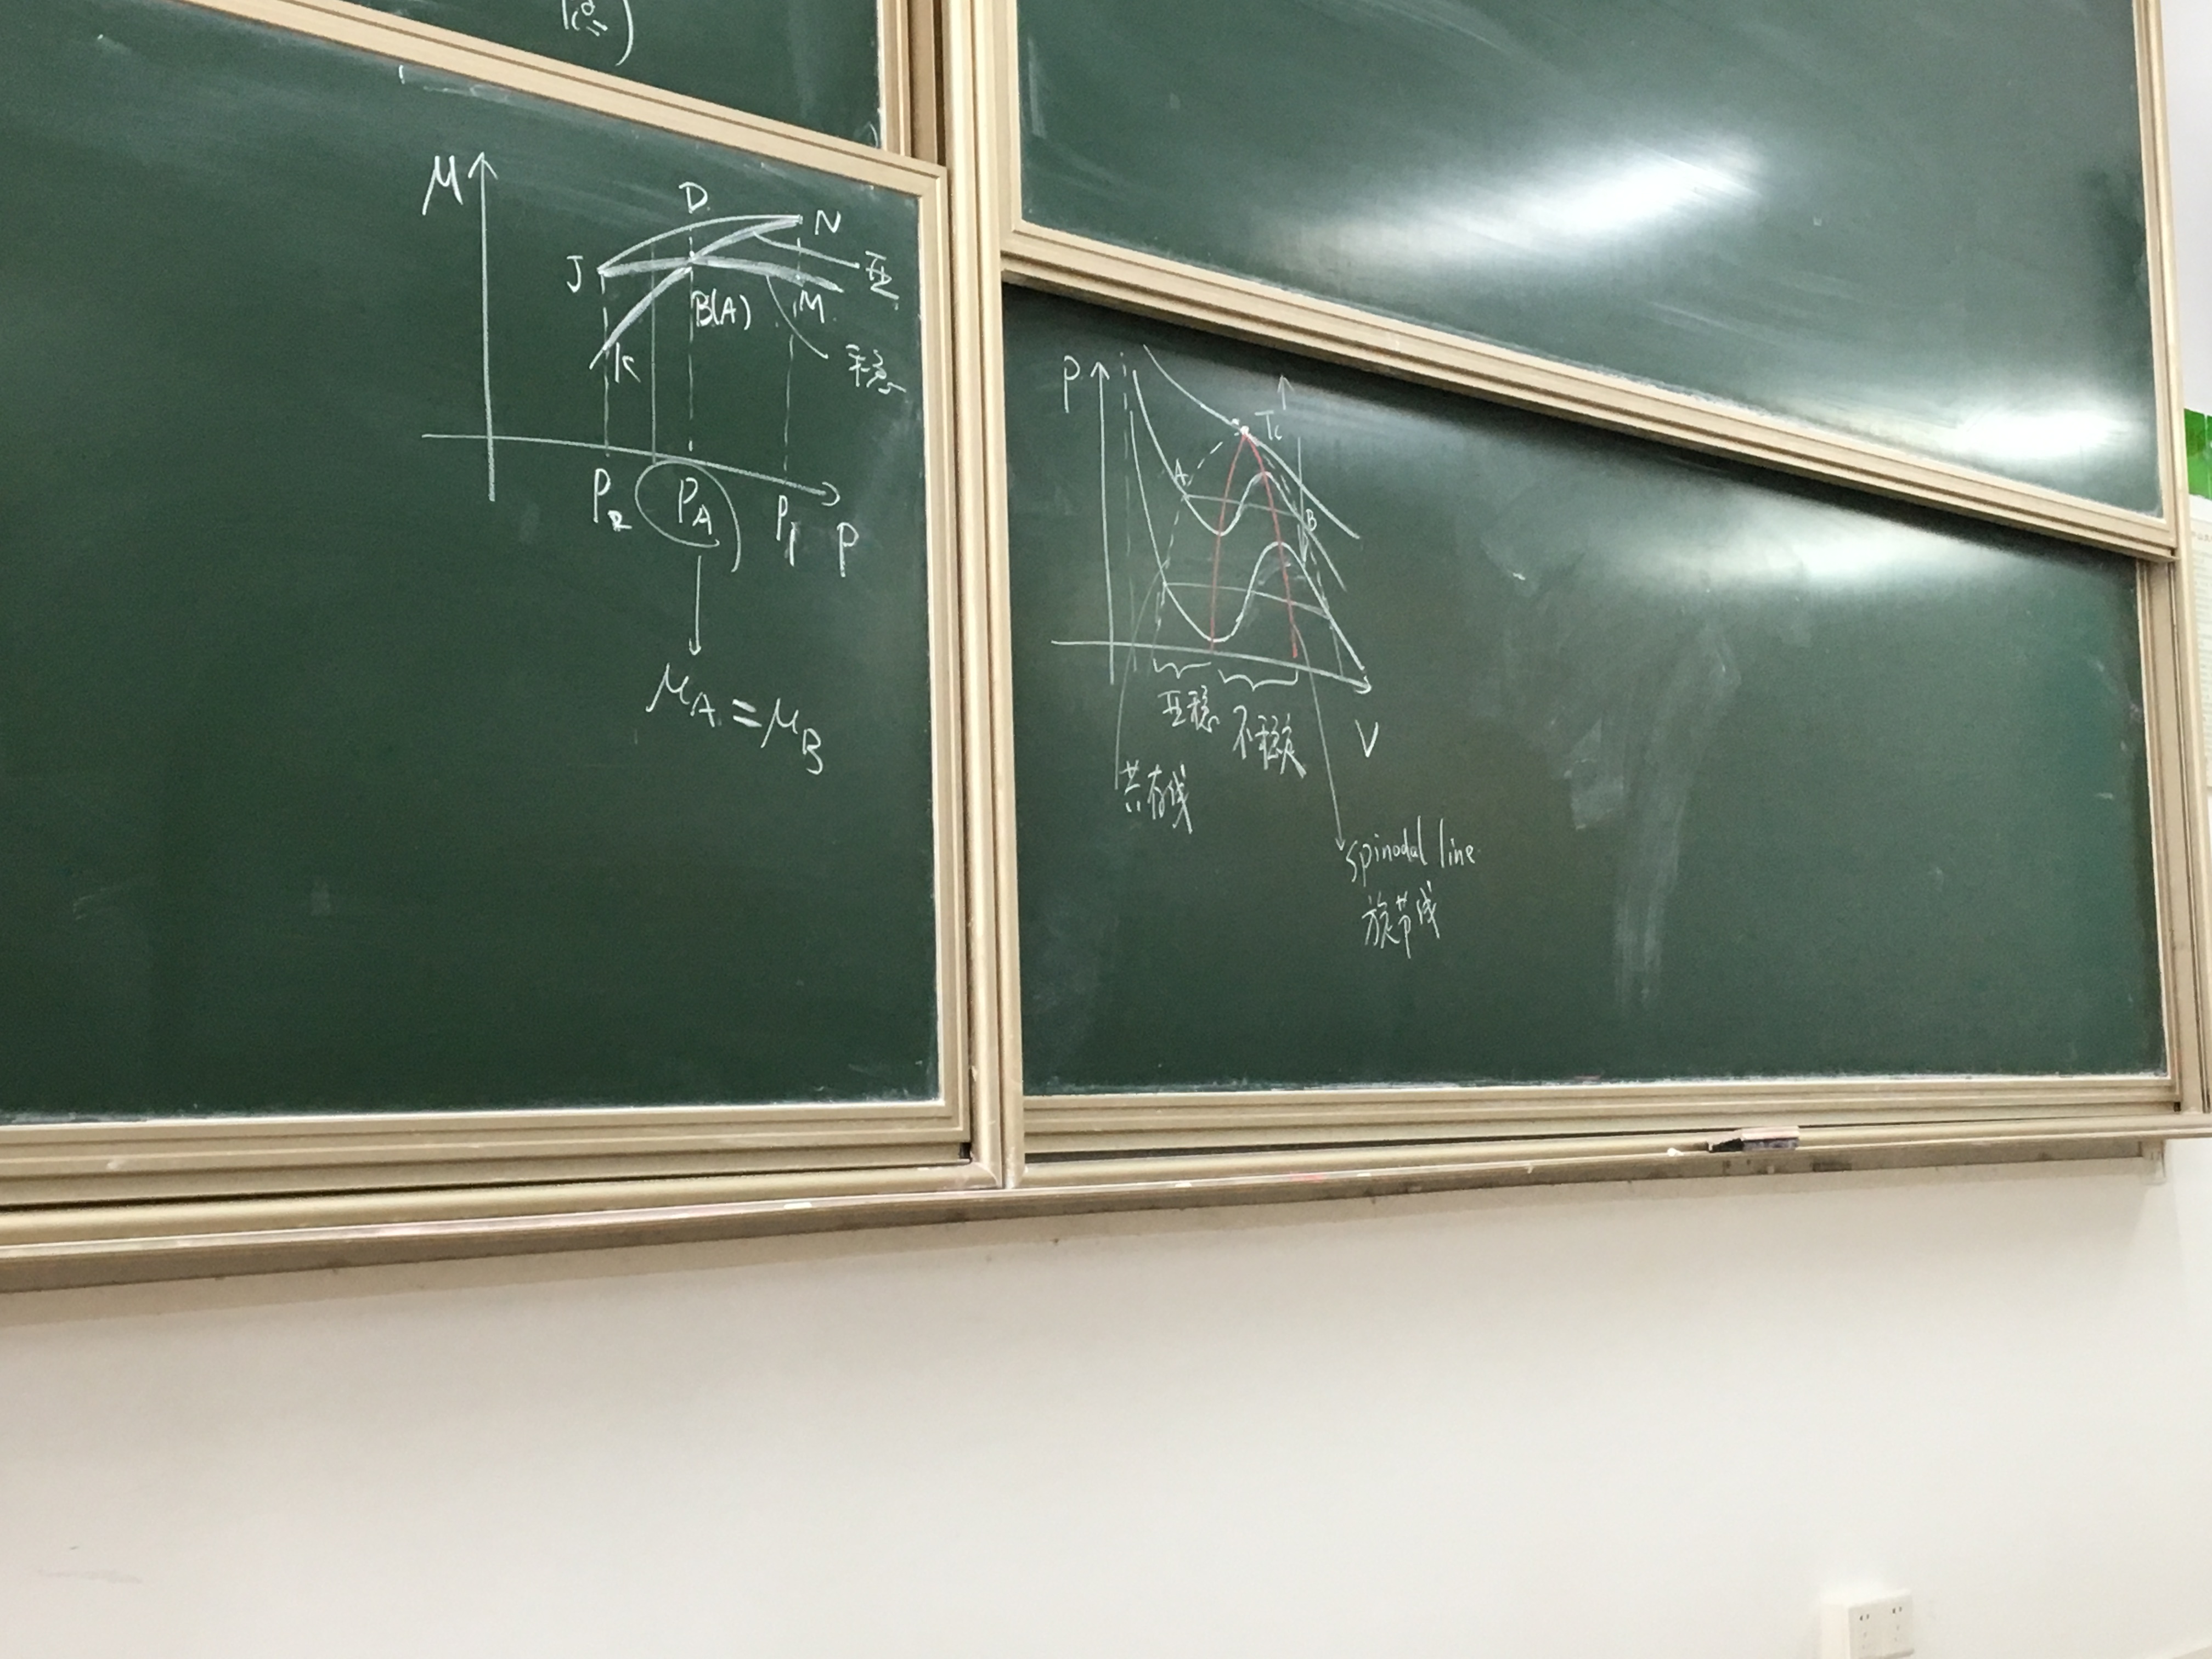 μ
D
N
J
亚
B(A)
M
稳
K
P₂
P_A
P₁
P
μ_A = μ_B
P
T_c
A
B
亚稳
不稳定
V
共存线
spinodal line
旋节线